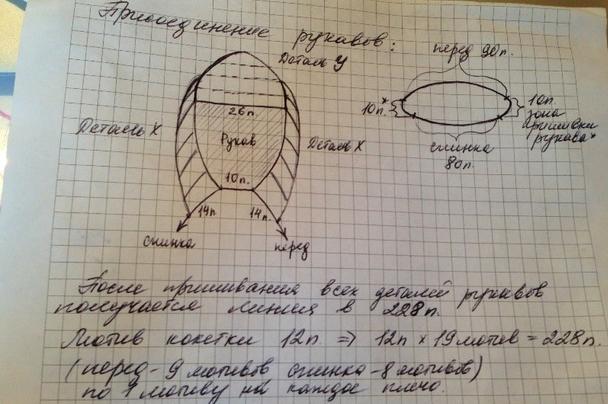 Присоединение рукавов:
Деталь У
перед 90п.
26п.
10п.*
10п.
зона
пришивки
рукава*
Деталь Х
Рукав
Деталь Х
спинка
80п.
10п.
14п.
14п.
спинка
перед
После пришивания всех деталей рукавов
получается линия в 228п.
Мотив кокетки 12п => 12п × 19мотив = 228п.
(перед - 9 мотивов спинка - 8 мотивов)
по 1 мотиву на каждое плечо.